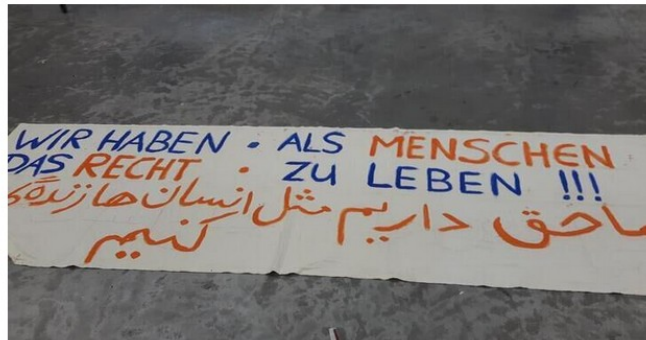 WIR HABEN • ALS MENSCHEN
DAS RECHT • ZU LEBEN !!!
ما حق داریم مثل انسان ها زنده گی
کنیم